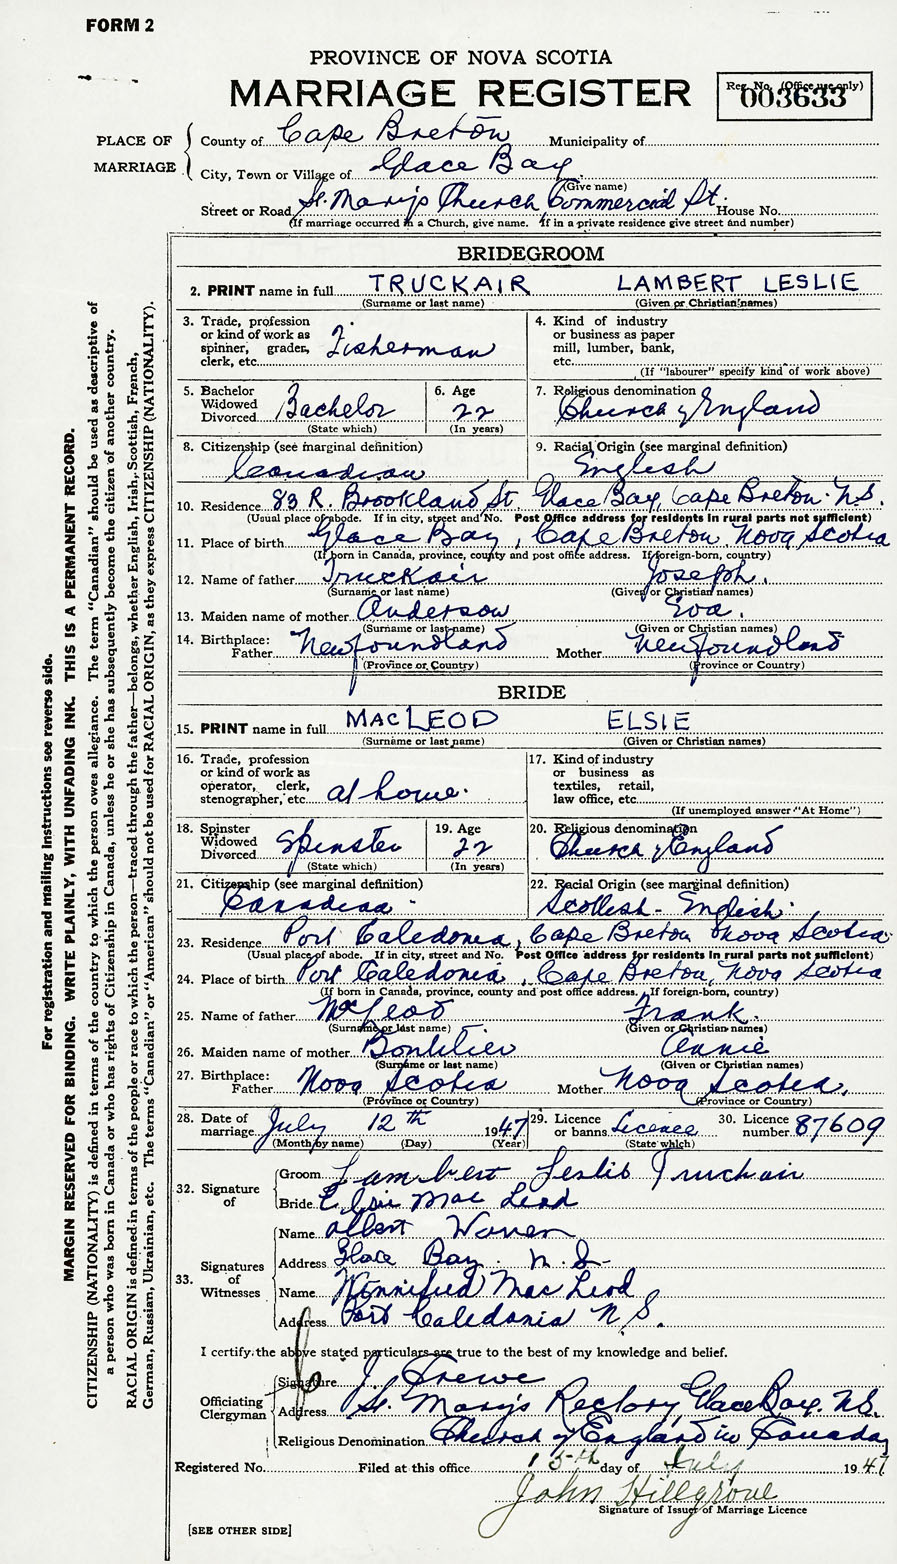 FORM 2
PROVINCE OF NOVA SCOTIA
MARRIAGE REGISTER
Reg. No. (Office use only)
003633
PLACE OF MARRIAGE
County of Cape Breton Municipality of
City, Town or Village of Glace Bay
(Give name)
Street or Road St. Mary's Church Commercial St. House No.
(If marriage occurred in a Church, give name. If in a private residence give street and number)
BRIDEGROOM
2. PRINT name in full TRUCKAIR LAMBERT LESLIE
(Surname or last name) (Given or Christian names)
3. Trade, profession or kind of work as spinner, grader, clerk, etc. Fisherman
4. Kind of industry or business as paper mill, lumber, bank, etc.
(If "labourer" specify kind of work above)
5. Bachelor Widowed Divorced Bachelor
(State which)
6. Age 22
(In years)
7. Religious denomination
Church of England
8. Citizenship (see marginal definition)
Canadian
9. Racial Origin (see marginal definition)
English
10. Residence 83 R. Brookland St. Glace Bay, Cape Breton. N.S.
(Usual place of abode. If in city, street and No. Post Office address for residents in rural parts not sufficient)
11. Place of birth Glace Bay, Cape Breton, Nova Scotia
(If born in Canada, province, county and post office address. If foreign-born, country)
12. Name of father Truckair Joseph.
(Surname or last name) (Given or Christian names)
13. Maiden name of mother Anderson Eva.
(Surname or last name) (Given or Christian names)
14. Birthplace: Father Newfoundland Mother Newfoundland
(Province or Country) (Province or Country)
BRIDE
15. PRINT name in full MACLEOD ELSIE
(Surname or last name) (Given or Christian names)
16. Trade, profession or kind of work as operator, clerk, stenographer, etc. at home.
17. Kind of industry or business as textiles, retail, law office, etc.
(If unemployed answer "At Home")
18. Spinster Widowed Divorced Spinster
(State which)
19. Age 22
(In years)
20. Religious denomination
Church of England
21. Citizenship (see marginal definition)
Canadian
22. Racial Origin (see marginal definition)
Scottish - English
23. Residence Port Caledonia, Cape Breton Nova Scotia
(Usual place of abode. If in city, street and No. Post Office address for residents in rural parts not sufficient)
24. Place of birth Port Caledonia, Cape Breton, Nova Scotia
(If born in Canada, province, county and post office address. If foreign-born, country)
25. Name of father McLeod Frank.
(Surname or last name) (Given or Christian names)
26. Maiden name of mother Boutilier Annie
(Surname or last name) (Given or Christian names)
27. Birthplace: Father Nova Scotia Mother Nova Scotia.
(Province or Country) (Province or Country)
28. Date of marriage July 12th 1947
(Month by name) (Day) (Year)
29. Licence or banns Licence
(State which)
30. Licence number 87609
32. Signature of
Groom Lambert Leslie Truckair
Bride Elsie Mac Leod
33. Signatures of Witnesses
Name Albert
Address Glace Bay. N.S.
Name Winnifred MacLeod
Address Port Caledonia N.S.
I certify the above stated particulars are true to the best of my knowledge and belief.
Officiating Clergyman
Signature
Address St. Mary's Rectory, Glace Bay. N.S.
Religious Denomination Church of England in Canada
Registered No. Filed at this office 15th day of July 1947
John Hillgrove
Signature of Issuer of Marriage Licence
[SEE OTHER SIDE]
For registration and mailing instructions see reverse side.
MARGIN RESERVED FOR BINDING. WRITE PLAINLY, WITH UNFADING INK. THIS IS A PERMANENT RECORD.
CITIZENSHIP (NATIONALITY) is defined in terms of the country to which the person owes allegiance. The term "Canadian" should be used as descriptive of
a person who was born in Canada or who has rights of Citizenship in Canada, unless he or she has subsequently become the citizen of another country.
RACIAL ORIGIN is defined in terms of the people or race to which the person—traced through the father—belongs, whether English, Irish, Scottish, French,
German, Russian, Ukrainian, etc. The terms "Canadian" or "American" should not be used for RACIAL ORIGIN, as they express CITIZENSHIP (NATIONALITY).